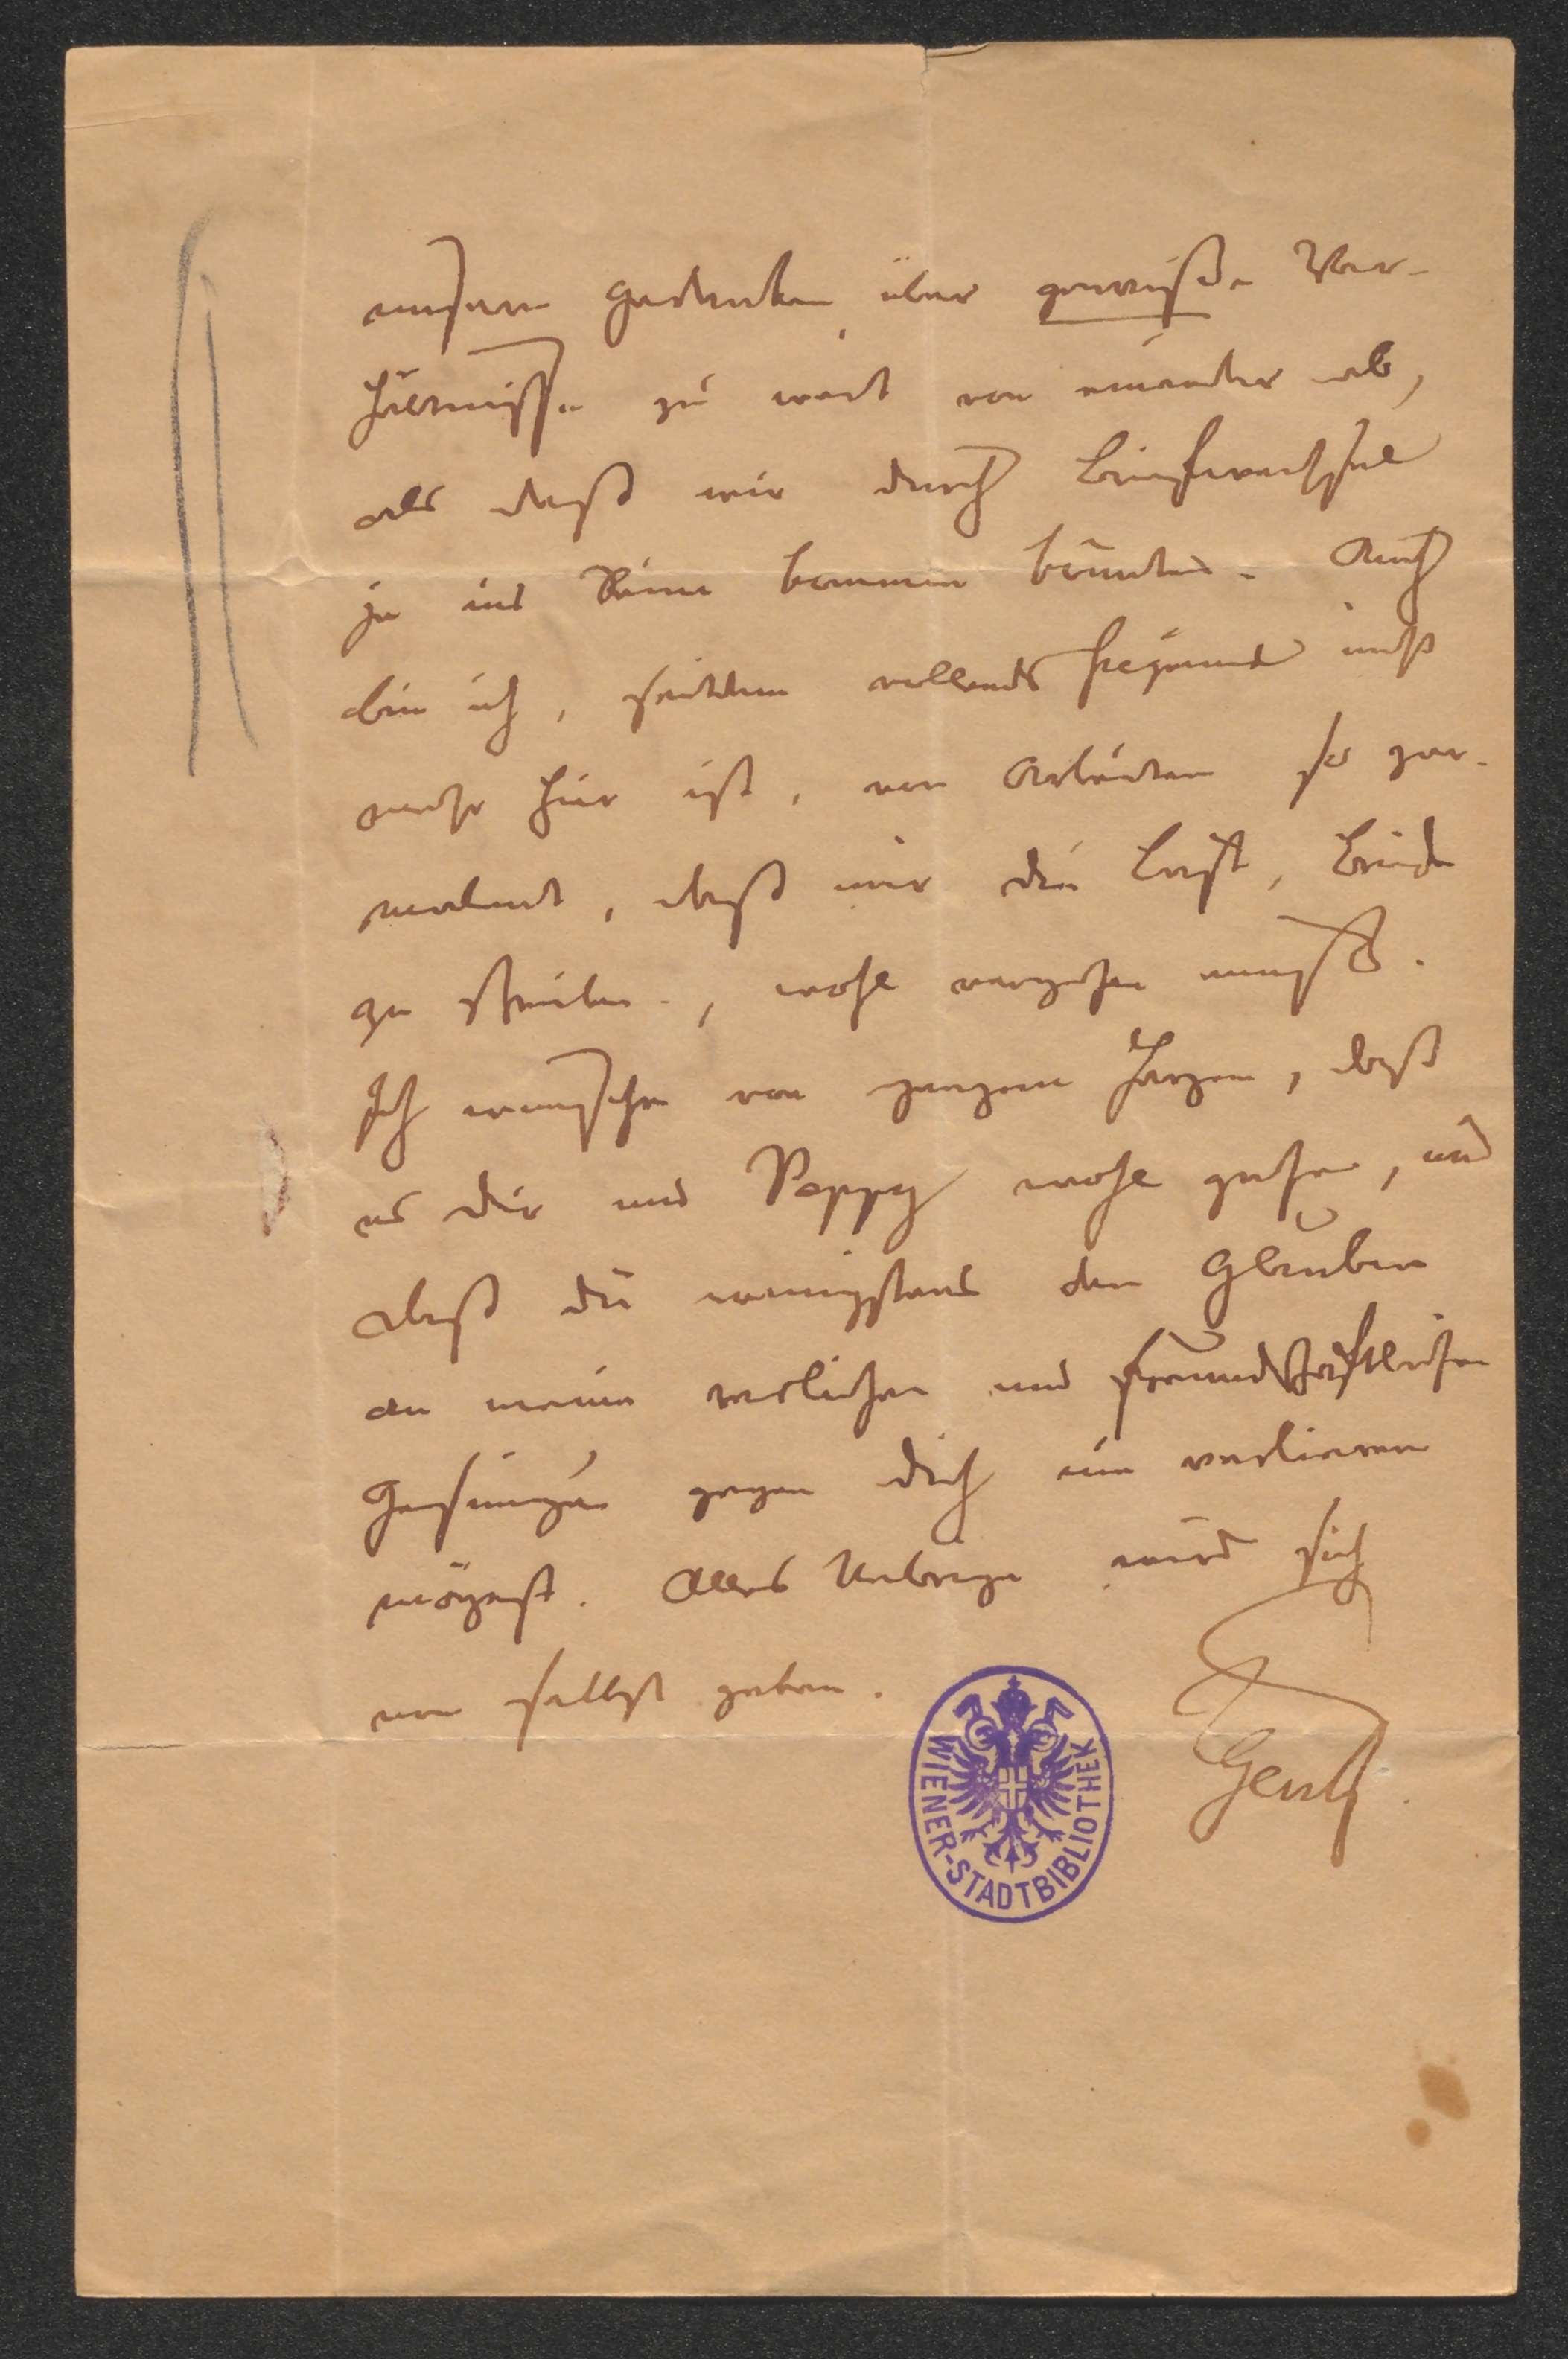 unsere Gedanken über gewiße Ver-
hältnisse zu weit von einander ab,
als daß wir durch Briefwechsel
je ins Reine kommen könnten. Auch
bin ich, seitdem vollends nicht
mehr hier ist, von Arbeiten so zer-
malmt, daß mir die Lust, Briefe
zu schreiben, wohl vergehen muß.
Ich wünsche von ganzem Herzen, daß
es Dir und Peppy wohl gehe, und
daß Du wenigstens den Glauben
an meine redlichen und freundschaftlichen
Gesinnungen gegen Dich nie verlieren
mögest. Alles Uebrige wird sich
von selbst geben.
Gentz.
WIENER-STADTBIBLIOTHEK